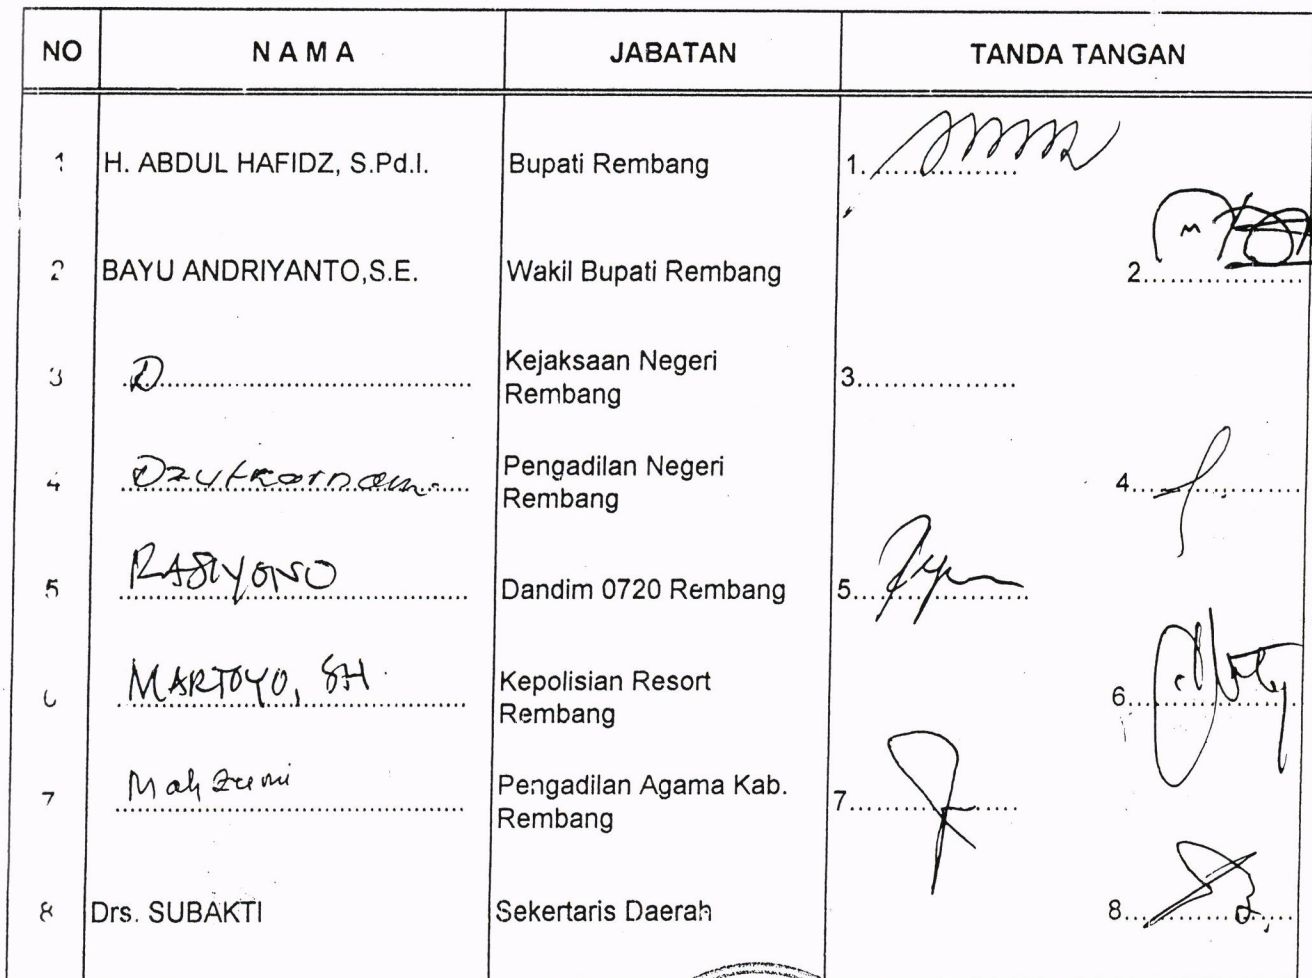 NO NAMA JABATAN TANDA TANGAN
1 H. ABDUL HAFIDZ, S.Pd.I. Bupati Rembang 1.................
2 BAYU ANDRIYANTO,S.E. Wakil Bupati Rembang 2.................
3 D Kejaksaan Negeri
Rembang 3.................
4 Pengadilan Negeri
Rembang 4.................
5 RASIYONO Dandim 0720 Rembang 5.................
6 MARTOYO, SH Kepolisian Resort
Rembang 6.................
7 Mahzumi Pengadilan Agama Kab.
Rembang 7.................
8 Drs. SUBAKTI Sekertaris Daerah 8.................